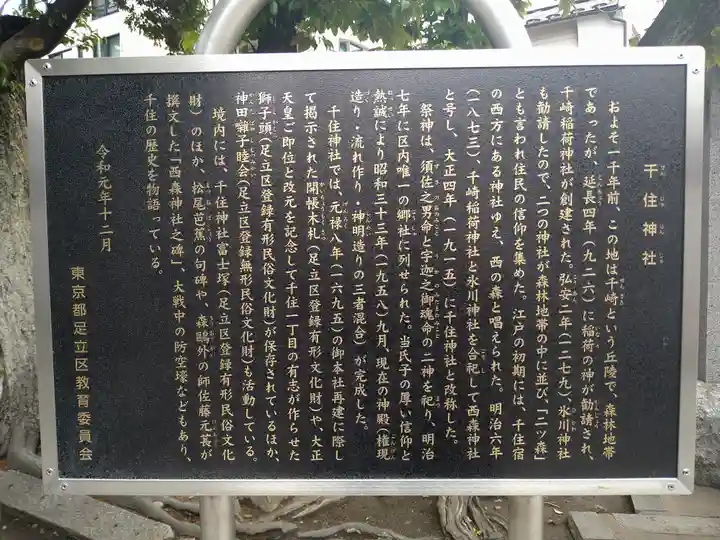 千住神社
およそ一千年前、この地は千崎という丘陵で、森林地帯
であったが、延長四年（九二六）に稲荷の神が勧請され、
千崎稲荷神社が創建された。弘安二年（一二七九）、氷川神社
も勧請したので、二つの神社が森林地帯の中に並び「二ツ森」
とも言われ住民の信仰を集めた。江戸の初期には、千住宿
の西方にある神社ゆえ、西の森と唱えられた。明治六年
（一八七三）、千崎稲荷神社と氷川神社を合祀して西森神社
と号し、大正四年（一九一五）に千住神社と改称した。
祭神は、須佐之男命と宇迦之御魂命の二神を祀り、明治
七年に区内唯一の郷社に列せられた。当氏子の厚い信仰と
熱誠により昭和三十三年（一九五八）九月、現在の神殿（権現
造り・流れ作り・神明造りの三者混合）が完成した。
千住神社では、元禄八年（一六九五）の御本社再建に際し
て掲示された開帳木札（足立区登録有形文化財）や、大正
天皇ご即位と改元を記念して千住一丁目の有志が作らせた
獅子頭（足立区登録有形民俗文化財）が保存されているほか、
神田囃子睦会（足立区登録無形民俗文化財）も活動している。
境内には、千住神社富士塚（足立区登録有形民俗文化
財）のほか、松尾芭蕉の句碑や、森鷗外の師佐藤元萇が
撰文した「西森神社之碑」、大戦中の防空壕などもあり、
千住の歴史を物語っている。
令和元年十二月
東京都足立区教育委員会